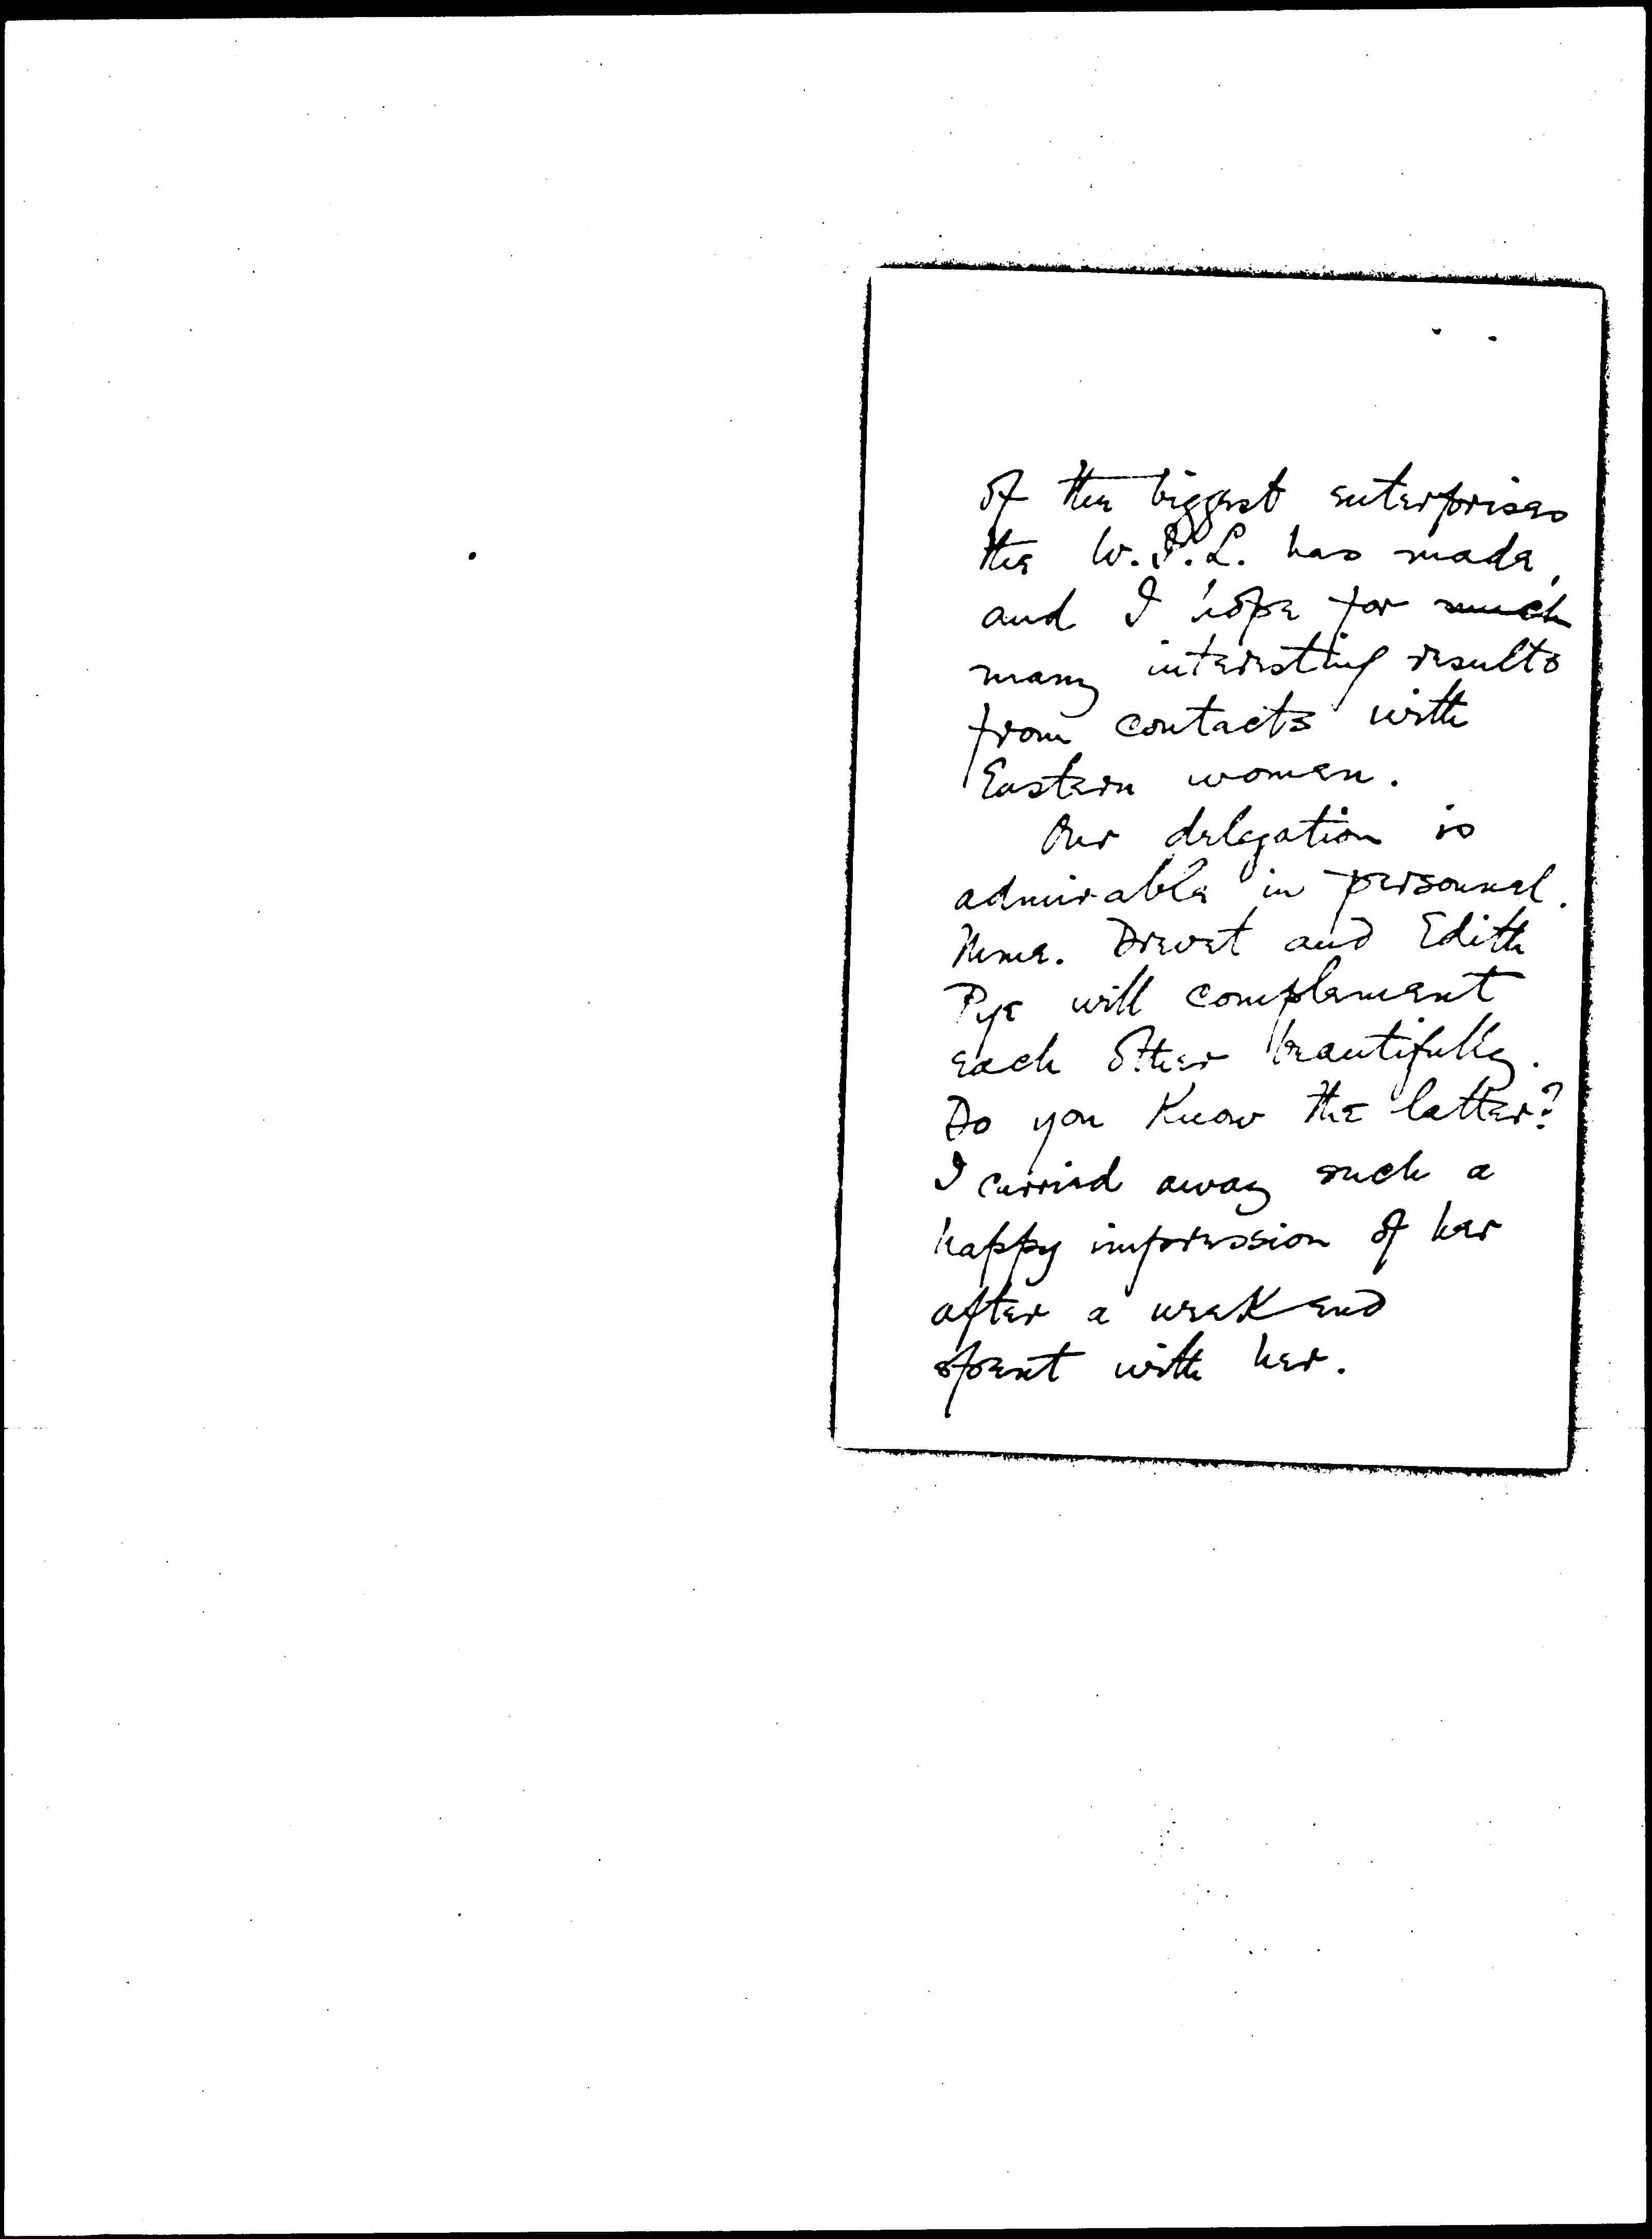 of the biggest enterprises
the W.I.L. has made,
and I hope for much
many interesting results
from contacts with
Eastern women.
Our delegation is
admirable in personnel.
Mme. Drevet and Edith
Pye will complement
each other beautifully.
Do you know the latter?
I carried away such a
happy impression of her
after a weekend
spent with her.